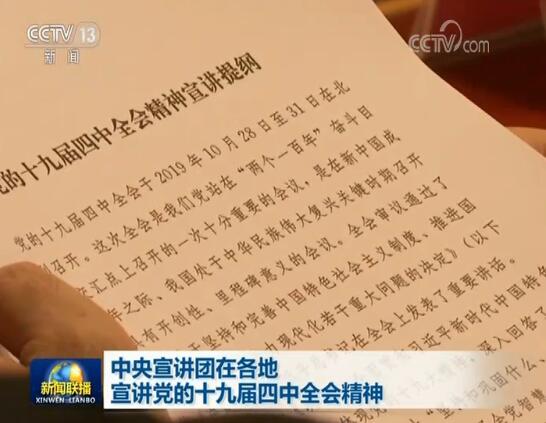 CCTV 13
新闻
CCTV.com
党的十九届四中全会精神宣讲提纲
党的十九届四中全会于2019年10月28日至31日在北
召开。这次全会是我们党站在“两个一百年”奋斗目
汇点上召开的一次十分重要的会议，是在新中国成
年之际、我国处于中华民族伟大复兴关键时期召开
有开创性、里程碑意义的会议。全会审议通过了
坚持和完善中国特色社会主义制度、推进国
现代化若干重大问题的决定》（以下
记在全会上发表了重要讲话。
近平新时代中国特色
深入回答了
坚持和巩固什么、
新闻联播
XINWEN LIANBO
中央宣讲团在各地
宣讲党的十九届四中全会精神